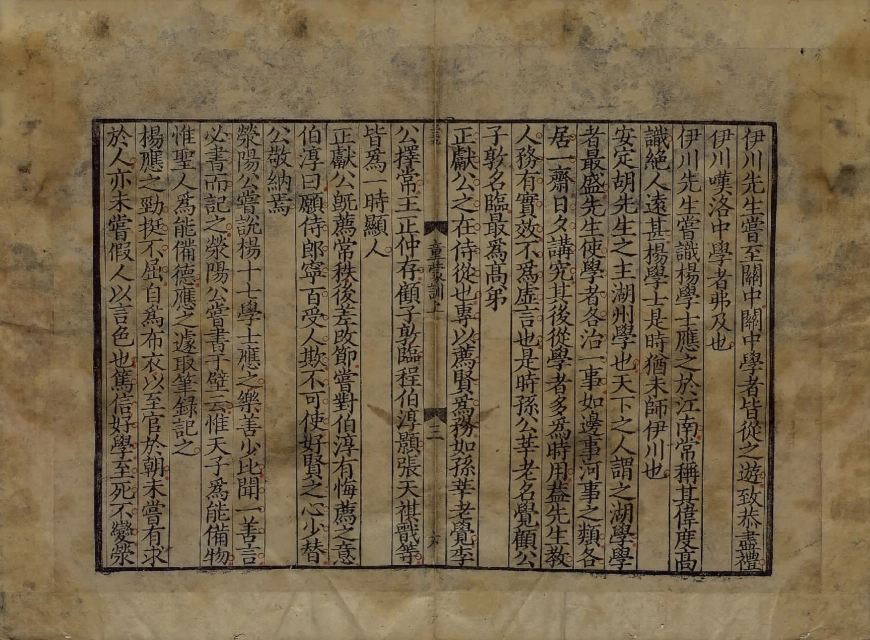 伊川先生嘗至關中關中學者皆從之遊致恭盡禮
伊川嘆洛中學者弗及也
伊川先生嘗識楊學士應之於江南常稱其偉度高
識絕人遠甚楊學士是時猶未師伊川也
安定胡先生之主湖州學也天下之人謂之湖學學
者最盛先生使學者各治一事如邊事河事之類各
居一齋日夕講究其後從學者多爲時用蓋先生教
人務有實效不爲虛言也是時孫公莘老名覺顧公
子敦名臨最爲高弟
正獻公之在侍從也專以薦賢爲務如孫莘老覺李
童蒙訓上
三
公擇常王正仲存顧子敦臨程伯淳顥張天祺戩等
皆爲一時顯人
正獻公旣薦常秩後差改節嘗對伯淳有悔薦之意
伯淳曰願侍郎寧百受人欺不可使好賢之心少替
公敬納焉
滎陽公嘗說楊十七學士應之樂善少比聞一善言
必書而記之滎陽公嘗書于壁云惟天子爲能備物
惟聖人爲能備德應之遽取筆錄記之
楊應之勁挺不屈自爲布衣以至官於朝未嘗有求
於人亦未嘗假人以言色也篤信好學至死不變滎